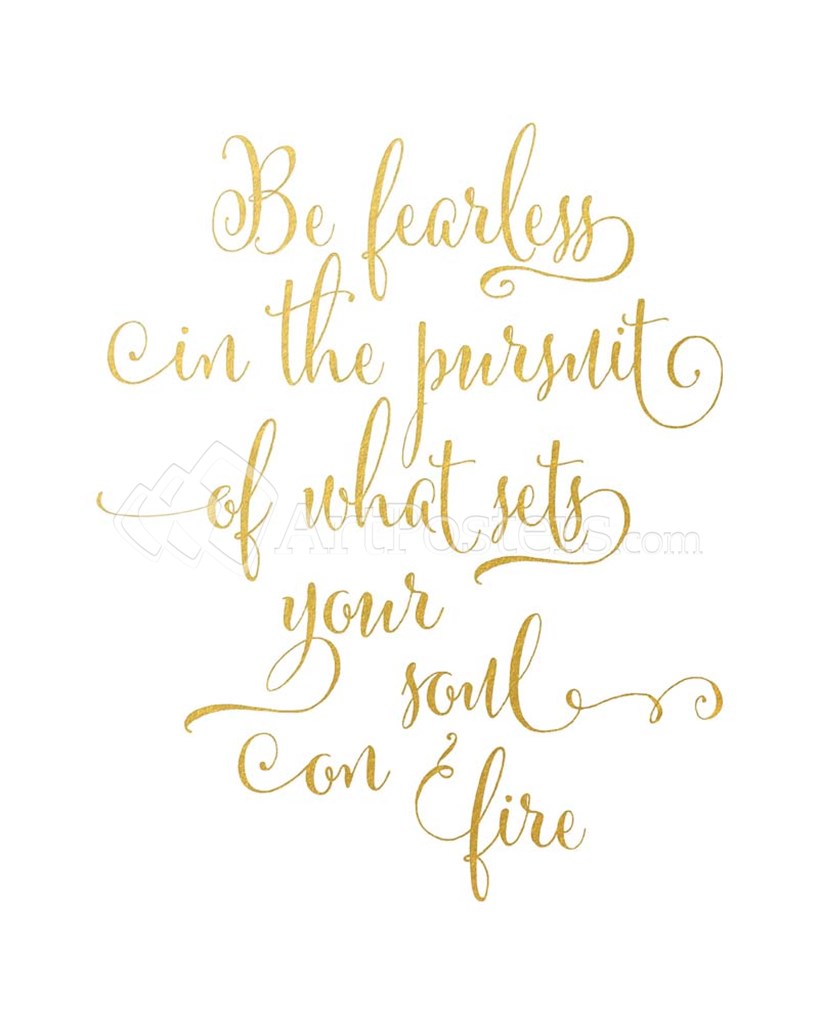 Be fearless
in the pursuit
of what sets
ArtPosters.com
your
soul
on fire